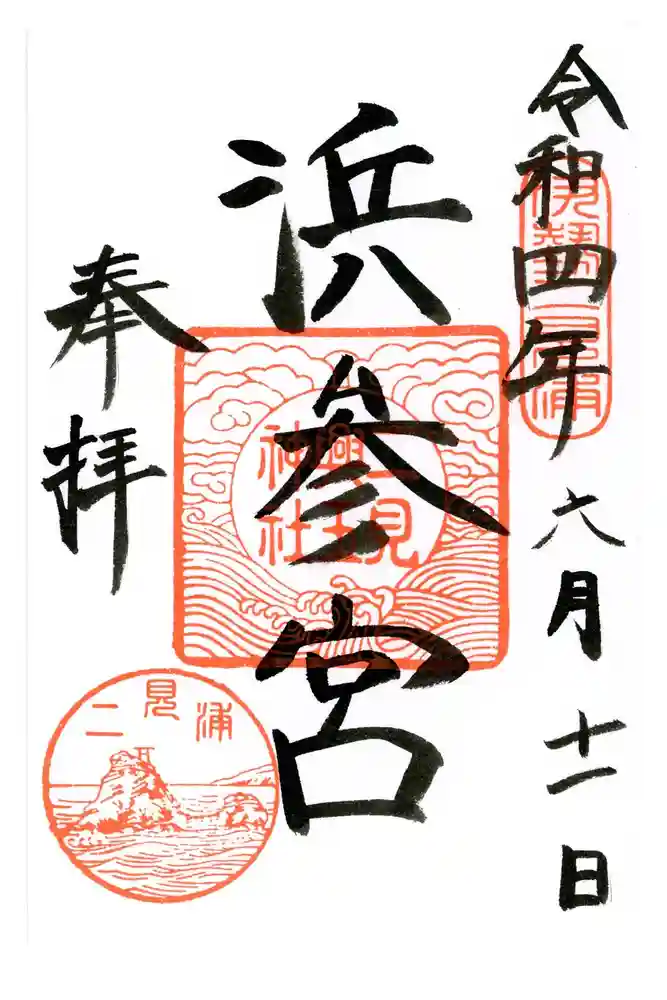 令和四年六月十一日
伊勢二見浦
浜参宮
二見
興玉
神社
奉拝
二見浦